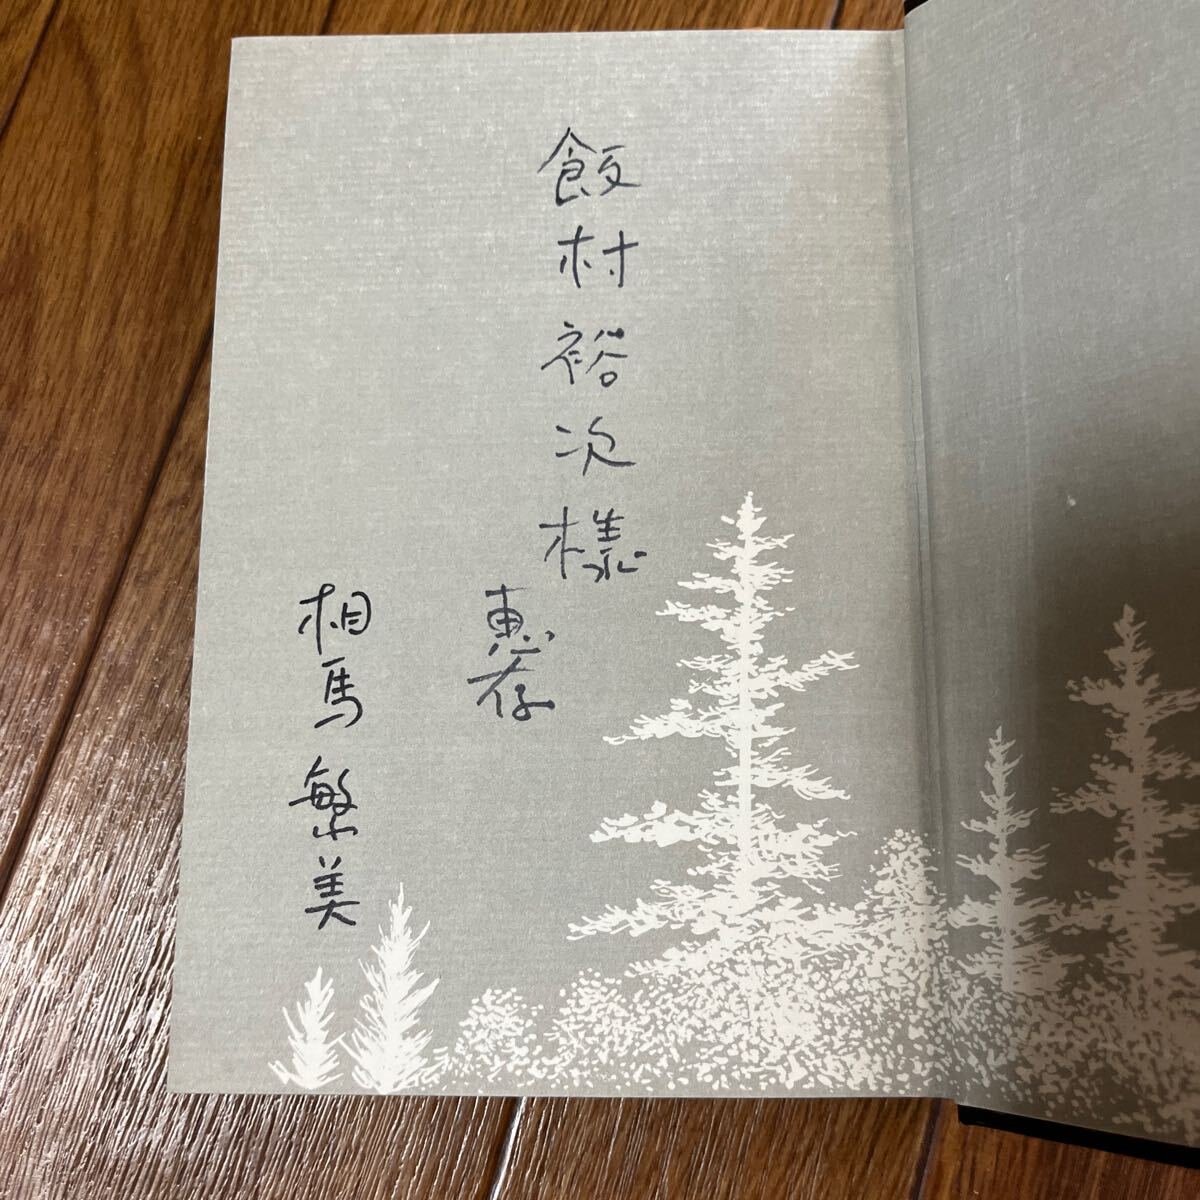 飯村裕次様
恵存
相馬繁美